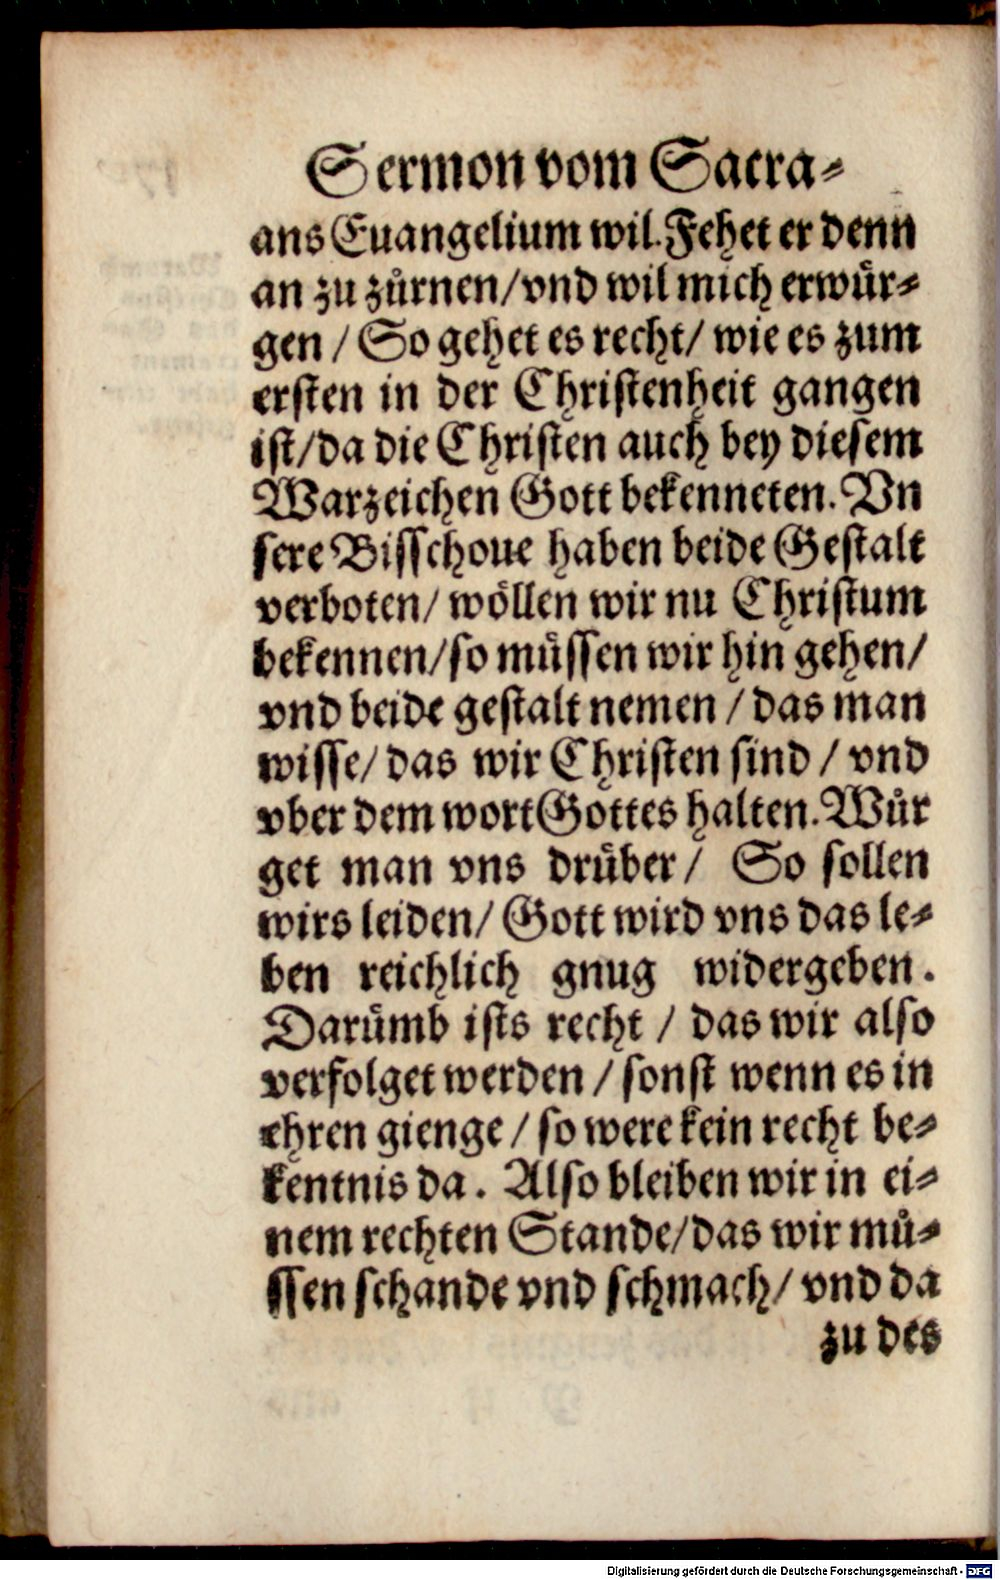 Sermon vom Sacra-
ans Euangelium wil. Fehet er denn
an zu zuͤrnen/vnd wil mich erwuͤr-
gen / So gehet es recht/ wie es zum
ersten in der Christenheit gangen
ist/da die Christen auch bey diesem
Warzeichen Gott bekenneten. Vn
sere Bisschoue haben beide Gestalt
verboten/ woͤllen wir nu Christum
bekennen/so muͤssen wir hin gehen/
vnd beide gestalt nemen / das man
wisse/ das wir Christen sind / vnd
vber dem wort Gottes halten. Wuͤr
get man vns druͤber/ So sollen
wirs leiden/ Gott wird vns das le-
ben reichlich gnug widergeben.
Daruͤmb ists recht / das wir also
verfolget werden / sonst wenn es in
ehren gienge / so were kein recht be-
kentnis da. Also bleiben wir in ei-
nem rechten Stande/das wir muͤ-
ssen schande vnd schmach/ vnd da
zu des
Digitalisierung gefördert durch die Deutsche Forschungsgemeinschaft - DFG